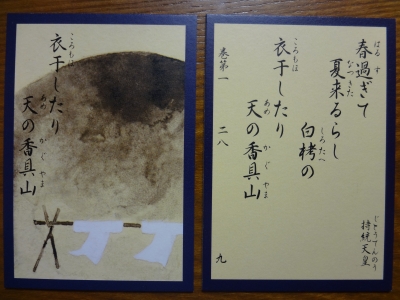 はる す
春過ぎて
なつ きた
夏来るらし
しろたへ
白栲の
ころもほ
衣干したり
あめ かぐやま
天の香具山
じとうてんのう
持統天皇
巻第一 二八
九
ころもほ
衣干したり
あめ かぐやま
天の香具山